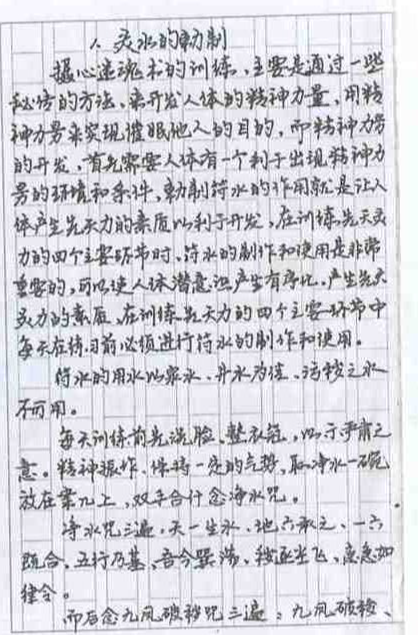 1、灵水的勅制
摄心迷魂术的训练、主要是通过一些
秘传的方法、来开发人体的精神力量，用精
神力号来实现催眠他人的目的，而精神力号
的开发，首先需要人体有一个利于出现精神力
号的环境和条件，勅制符水的作用就是让人
体产生先天力的素质以利于开发，在训练先天灵
力的四个主要环节时、符水的制作和使用是非常
重要的，可以使人体潜意识产生有序化、产生先天
灵力的素质、在训练先天力的四个主要环节中
每天在练习前必须进行符水的制作和使用。
符水的用水以泉水、井水为佳、污秽之水
不可用。
每天训练前先洗脸、整衣冠，以示严肃之
意。精神振作、保持一定的气势，取净水一碗
放在案几上，双手合什念净水咒。
净水咒三遍，天一生水、地六承之、一六
既合、五行乃基、吾今噀荡、秽逐尘飞、急急如
律令。
而后念九凤破秽咒三遍：九凤破秽、